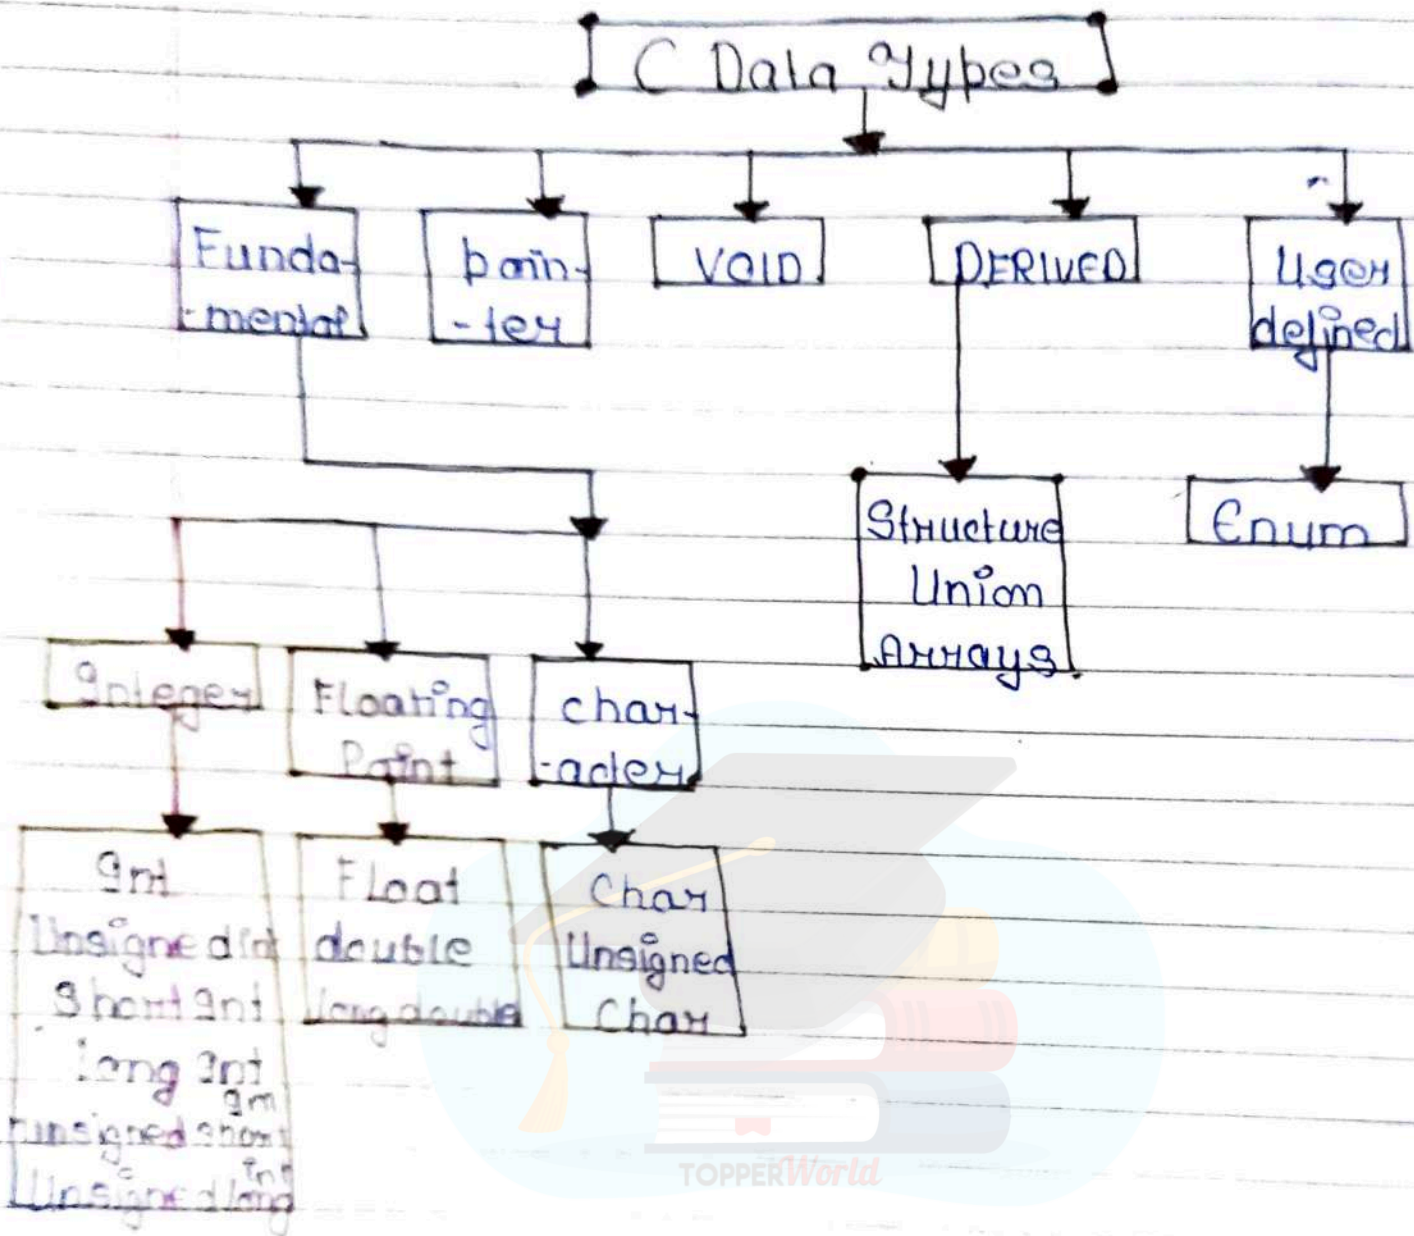 C Data Types
Funda-
-mental
poin-
-ter
VOID
DERIVED
User
defined
Structure
Union
Arrays
Enum
Integer
Floating
Point
char-
-acter
Int
Unsigned int
Short Int
long Int
unsigned short
int
Unsigned long
Float
double
long double
Char
Unsigned
Char
TOPPERWorld